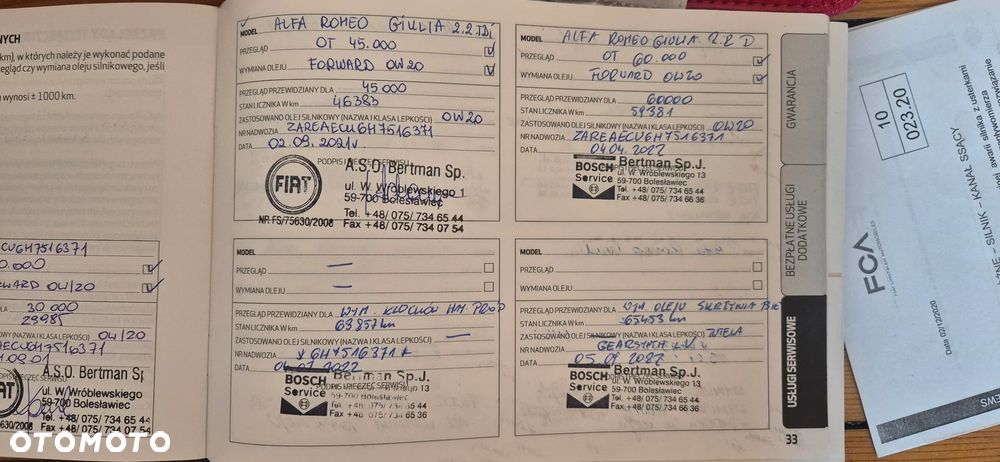 NYCH
km), w których należy je wykonać podane
egląd czy wymiana oleju silnikowego, jeśli
wynosi ± 1000 km.
MODEL ALFA ROMEO GIULIA 2.2 TDi
PRZEGLĄD OT 45.000
WYMIANA OLEJU FORWARD OW20
PRZEGLĄD PRZEWIDZIANY DLA 45 000
STAN LICZNIKA W km 46383
ZASTOSOWANO OLEJ SILNIKOWY (NAZWA I KLASA LEPKOŚCI) OW20
NR NADWOZIA ZAREAECU6H7516371
DATA 02.09.2021r.
PODPIS I PIECZĘĆ SERWISU
FIAT
NR FS/75630/2008
A.S.O. Bertman Sp.J.
ul. W. Wróblewskiego 1
59-700 Bolesławiec
Tel. +48/ 075/ 734 65 44
Fax +48/ 075/ 734 07 54
MODEL ALFA ROMEO GIULIA 2.2 D
PRZEGLĄD OT 60.000
WYMIANA OLEJU FORWARD OW20
PRZEGLĄD PRZEWIDZIANY DLA 60000
STAN LICZNIKA W km 59381
ZASTOSOWANO OLEJ SILNIKOWY (NAZWA I KLASA LEPKOŚCI) OW20
NR NADWOZIA ZAREAECU6H7516371
DATA 04.04.2022
PODPIS I PIECZĘĆ SERWISU
BOSCH
Service
Bertman Sp.J.
ul. W. Wróblewskiego 13
59-700 Bolesławiec
Tel. +48/ 075/ 734 65 44
Fax +48/ 075/ 734 66 36
CU6H7516371
0.000
WARD OW/20
30 000
29985
OWY (NAZWA I KLASA LEPKOŚCI) OW/20
AECU6H7516371
.09.01
PODPIS I PIECZĘĆ SERWISU
A.S.O. Bertman Sp
ul. W. Wróblewskiego
59-700 Bolesławiec
Tel. +48/ 075/ 734 65 44
Fax +48/ 075/ 734 07 54
5630/2008
MODEL
PRZEGLĄD —
WYMIANA OLEJU —
PRZEGLĄD PRZEWIDZIANY DLA WYM. KLOCKÓW HAM. PRZÓD
STAN LICZNIKA W km 63857 km
ZASTOSOWANO OLEJ SILNIKOWY (NAZWA I KLASA LEPKOŚCI) —
NR NADWOZIA *6H7516371*
DATA 04.07.2022
PODPIS I PIECZĘĆ SERWISU
BOSCH
Service
Bertman Sp.J.
ul. W. Wróblewskiego 13
59-700 Bolesławiec
Tel. +48/ 075/ 734 65 44
Fax +48/ 075/ 734 66 36
MODEL
PRZEGLĄD
WYMIANA OLEJU
PRZEGLĄD PRZEWIDZIANY DLA WYM OLEJU SKRZYNIA
STAN LICZNIKA W km 65453 km
ZASTOSOWANO OLEJ SILNIKOWY (NAZWA I KLASA LEPKOŚCI) TUTELA
NR NADWOZIA
DATA 05.09.2022
BOSCH
Service
Bertman Sp.J.
ul. W. Wróblewskiego 13
59-700 Bolesławiec
Tel. +48/ 075/ 734 65 44
Fax +48/ 075/ 734 66 36
33
GWARANCJA
BEZPŁATNE USŁUGI
DODATKOWE
USŁUGI SERWISOWE
10
023.20
FCA
Data 02/12/2020
SILNIK – KANAŁ SSĄCY
awarii silnika z usterkami
EWS
OTOMOTO